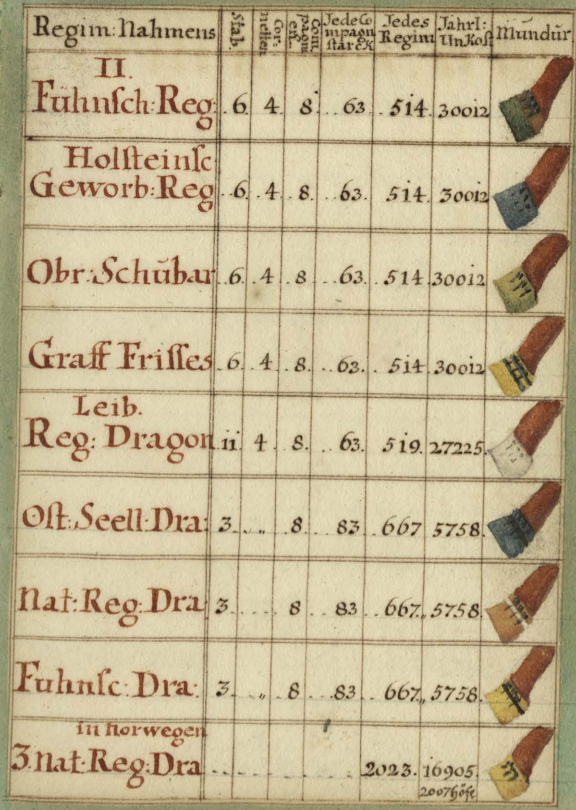 Regim: Nahmens Stab. Cor: netten Com pagni en. Jede Co mpagn starck Jedes Regim Jahrl: UnKost Mundur
II.
Fühnsch: Reg: 6. 4. 8. 63. 514. 30012
Holsteinsc
Geworb: Reg 6. 4. 8. 63. 514. 30012
Obr: Schübar 6. 4. 8. 63. 514. 30012
Graff Frisses 6. 4. 8. 63. 514. 30012
Leib.
Reg: Dragon 11. 4. 8. 63. 519. 27225.
Ost: Seell: Dra: 3. „ 8. 83. 667. 5758.
Nat: Reg: Dra 3. 8. 83. 667„ 5758.
Fuhnsc: Dra: 3. „ 8. 83. 667„ 5758.
in Norwegen
3. Nat: Reg: Dra 2023. 16905.
2007 höfe